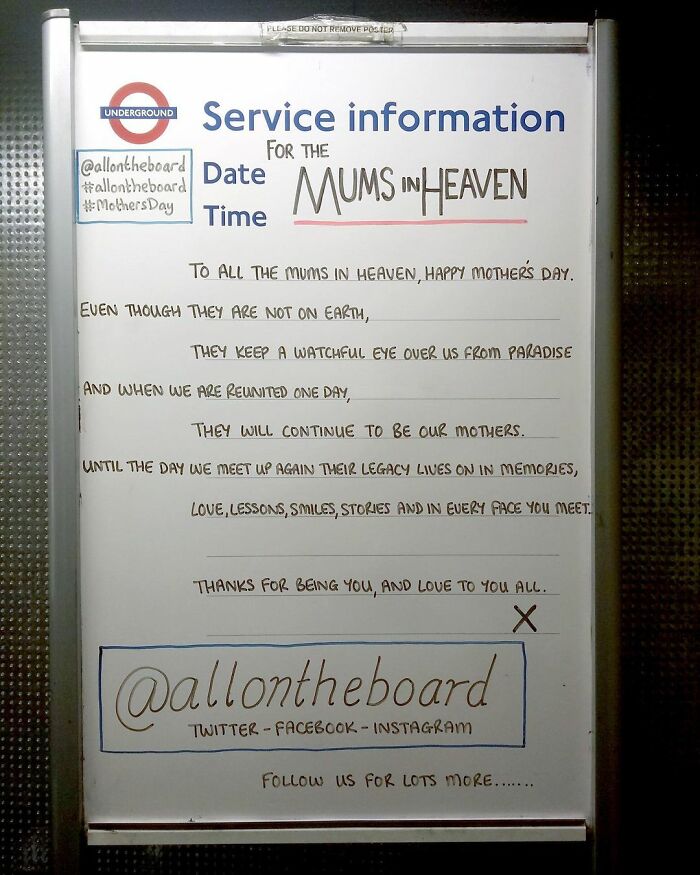 PLEASE DO NOT REMOVE POSTER
UNDERGROUND
Service information
FOR THE
@allontheboard
#allontheboard
#MothersDay
Date
MUMS IN HEAVEN
Time
TO ALL THE MUMS IN HEAVEN, HAPPY MOTHER'S DAY.
EVEN THOUGH THEY ARE NOT ON EARTH,
THEY KEEP A WATCHFUL EYE OVER US FROM PARADISE
AND WHEN WE ARE REUNITED ONE DAY,
THEY WILL CONTINUE TO BE OUR MOTHERS.
UNTIL THE DAY WE MEET UP AGAIN THEIR LEGACY LIVES ON IN MEMORIES,
LOVE, LESSONS, SMILES, STORIES AND IN EVERY FACE YOU MEET.
THANKS FOR BEING YOU, AND LOVE TO YOU ALL.
X
@allontheboard
TWITTER - FACEBOOK - INSTAGRAM
FOLLOW US FOR LOTS MORE.......